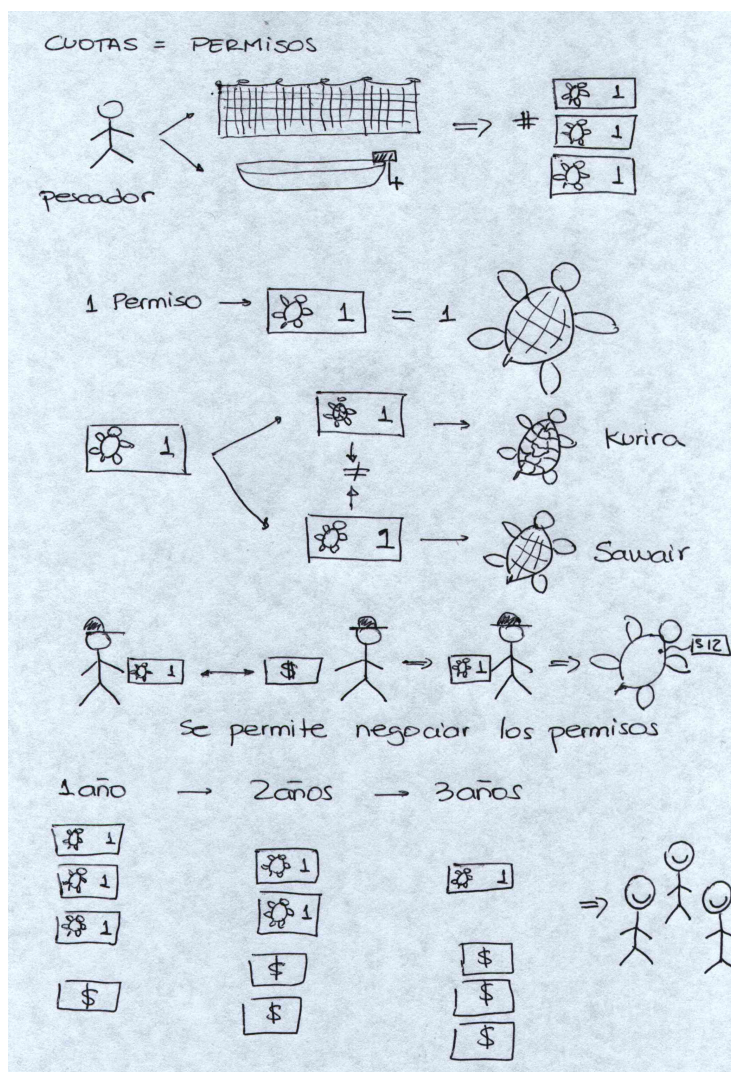 CUOTAS = PERMISOS
pescador
⇒ # 1
1
1
1 Permiso → 1 = 1
1 1 → Kurira
≠
1 → Sawair
1 ↔ $ ⇒ 1 ⇒ S12
Se permite negociar los permisos
1 año → 2 años → 3 años
1
1 1 1
1 1
$ $ $
$ $
$